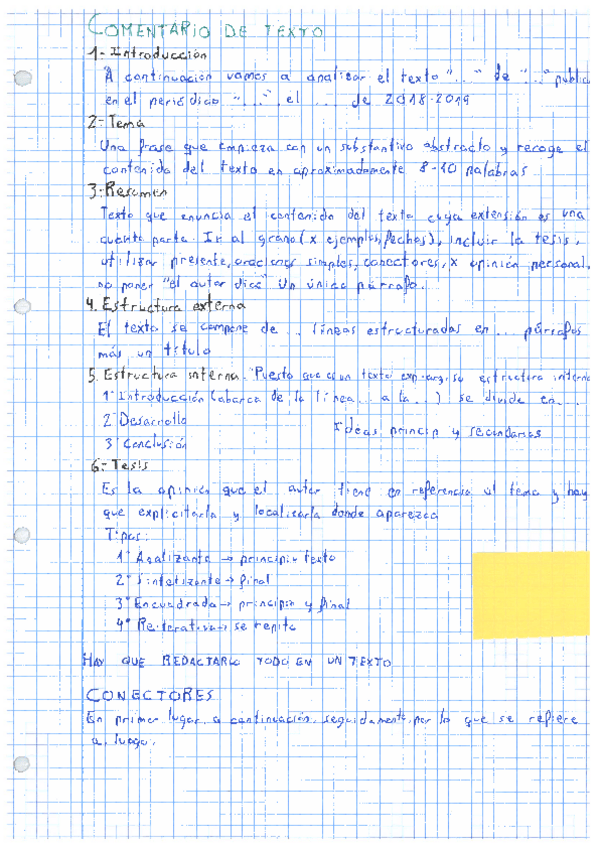 COMENTARIO DE TEXTO
1- Introducción
"A continuación vamos a analizar el texto "..." de "..." public
en el periódico "...", el ... de 2018-2019
2- Tema
Una frase que empieza con un substantivo abstracto y recoge el
contenido del texto en aproximadamente 8-10 palabras
3-Resumen
Texto que enuncia el contenido del texto cuya extensión es una
cuarta parte. Ir al grano (x ejemplos, fechas), incluir la tesis,
utilizar presente, oraciones simples, conectores, x opinión personal,
no poner "el autor dice" Un único párrafo.
4. Estructura externa
El texto se compone de ... líneas estructuradas en ... párrafos
más un título
5. Estructura interna. "Puesto que es un texto exp-arg, su estructura interna
1º Introducción (abarca de la línea ... a la ...) se divide en ...
2º Desarrollo
Ideas princip y secundarias
3º Conclusión
6.- Tesis
Es la opinión que el autor tiene en referencia al tema y hay
que explicitarla y localizarla donde aparezca
Tipos:
1º Analizante → principio texto
2º Sintetizante → final
3º Encuadrada → principio y final
4º Reiterativa → se repite
HAY QUE REDACTARLO TODO EN UN TEXTO
CONECTORES
En primer lugar, a continuación, seguidamente, por lo que se refiere
a, luego,